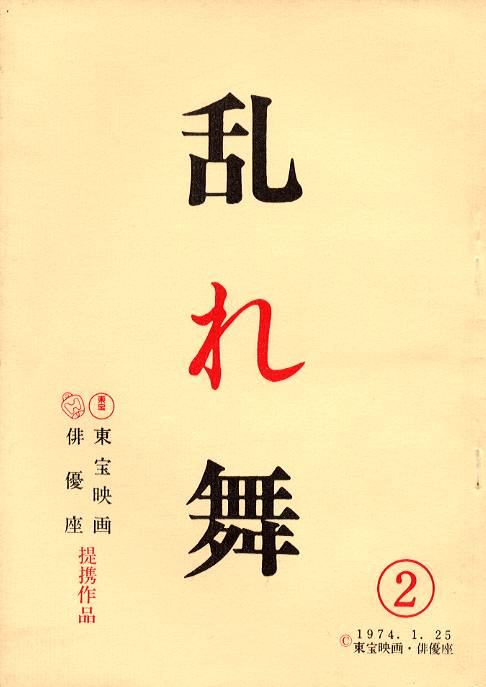 乱れ舞
東宝
東宝映画
俳優座
提携作品
2
1974. 1. 25
©東宝映画・俳優座